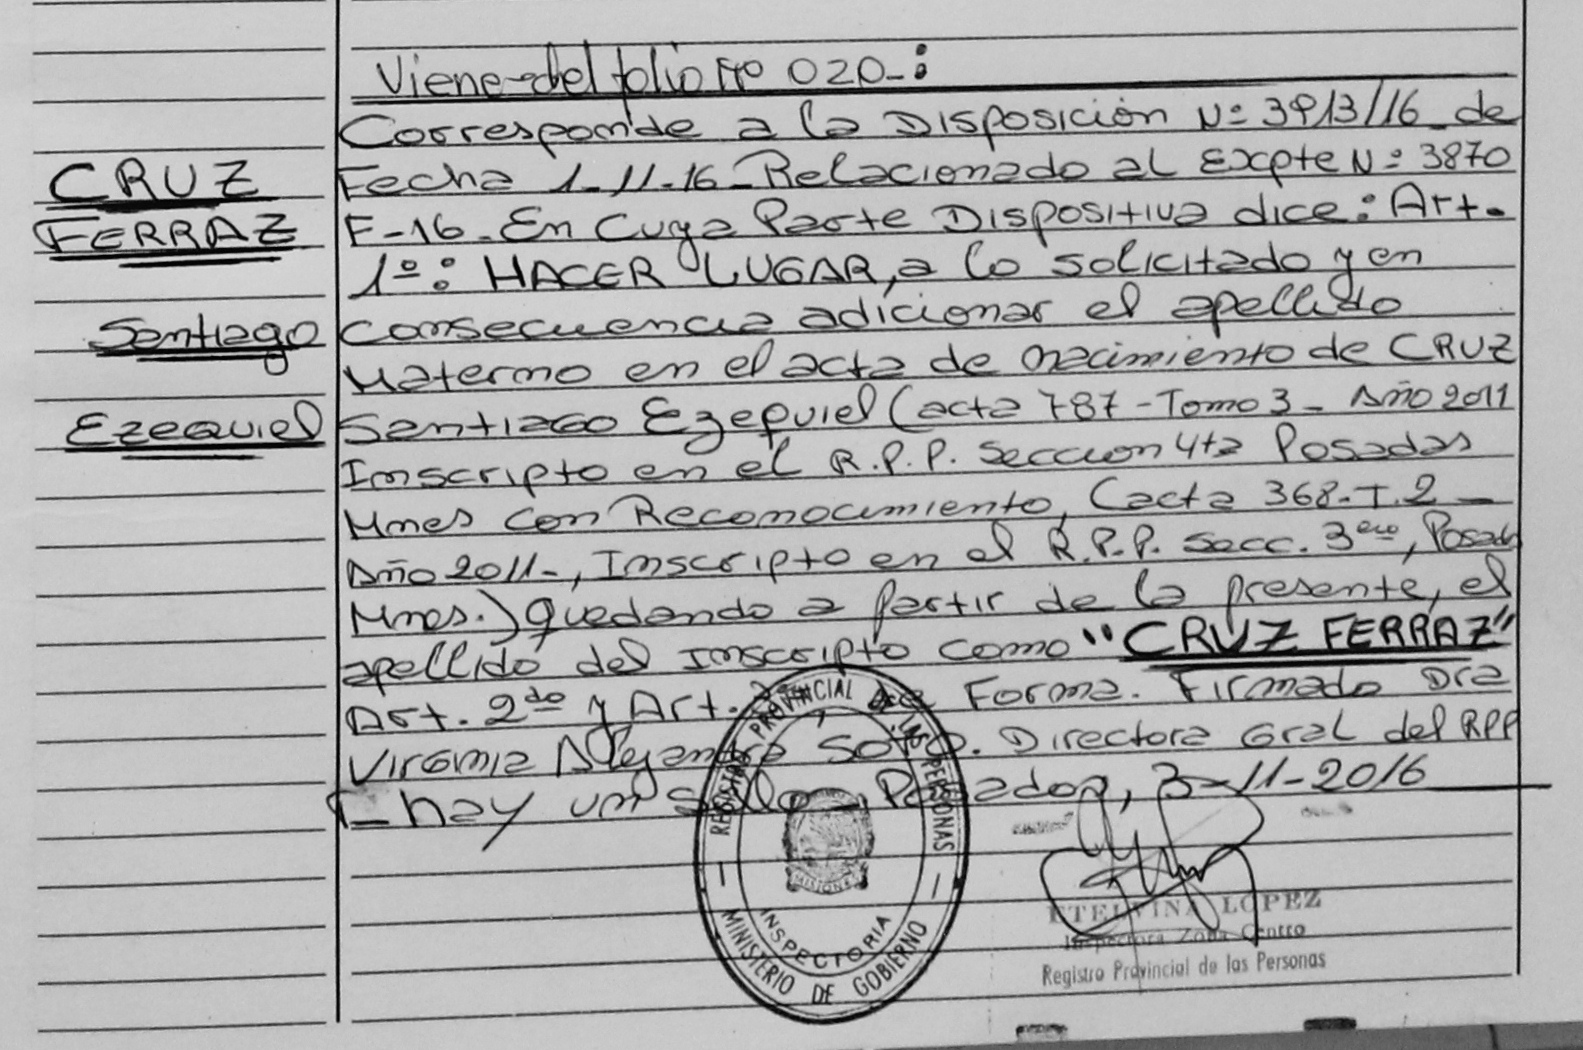 Viene del folio Nº 020-:
CRUZ
FERRAZ
Santiago
Ezequiel
Corresponde a la Disposición Nº 3913/16 de
Fecha 1-11-16- Relacionado al Expte Nº 3870
F-16. En Cuya Parte Dispositiva dice: Art.
1º: HACER LUGAR, a lo solicitado y en
consecuencia adicionar el apellido
Materno en el acta de nacimiento de CRUZ
Santiago Ezequiel (acta 787 - Tomo 3 - Año 2011
Inscripto en el R.P.P. Seccion 4ta Posadas
Mnes con Reconocimiento, (acta 368-T.2-
Año 2011-, Inscripto en el R.P.P. Secc. 3era, Posadas
Mnes.) quedando a partir de la presente, el
apellido del Inscripto como "CRUZ FERRAZ"
Art. 2do y Art. de Forma. Firmado Dra
Virginia Alejandra Directora Gral del RPP
- hay un sello - Posadas, 3-11-2016
REGISTRO PROVINCIAL DE LAS PERSONAS
MISIONES
INSPECTORIA
MINISTERIO DE GOBIERNO
ETELVINA LOPEZ
Inspectora Zona Centro
Registro Provincial de las Personas